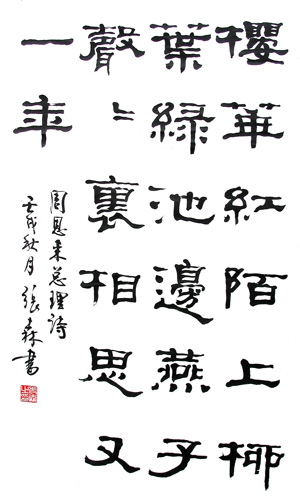 櫻華紅陌上柳
葉緑池邊燕子
聲〻裏相思又
一年
周恩来总理詩
壬戌秋月張森書